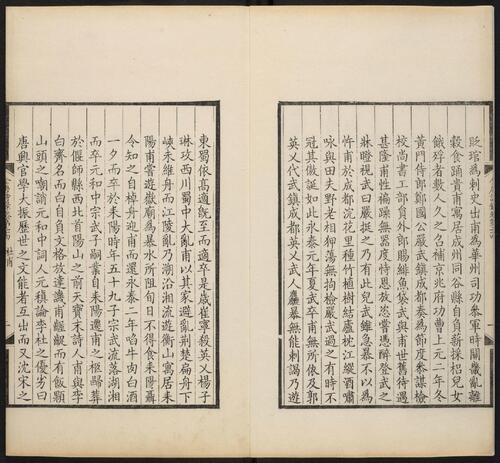 貶琯為刺史出甫為華州司功參軍時關畿亂離
穀食踊貴甫寓居成州同谷縣自負薪採梠兒女
餓殍者數人久之召補京兆府功曹上元二年冬
黃門侍郎鄭國公嚴武鎮成都奏為節度參謀檢
校尚書工部員外郎賜緋魚袋武與甫世舊待遇
甚隆甫性褊躁無器度恃恩放恣嘗憑醉登武之
牀瞪視武曰嚴挺之乃有此兒武雖急暴不以為
忤甫於成都浣花里種竹植樹結廬枕江縱酒嘯
詠與田夫野老相狎蕩無拘檢嚴武過之有時不
冠其傲誕如此永泰元年夏武卒甫無所依及郭
英乂代武鎮成都英乂武人麤暴無能刺謁乃遊
東蜀依高適既至而適卒是歲崔寧殺英乂楊子
琳攻西川蜀中大亂甫以其家避亂荊楚扁舟下
峽未維舟而江陵亂乃溯沿湘流遊衡山寓居耒
陽甫嘗遊嶽廟為暴水所阻旬日不得食耒陽聶
令知之自棹舟迎甫而還永泰二年啗牛肉白酒
一夕而卒於耒陽時年五十九子宗武流落湖湘
而卒元和中宗武子嗣業自耒陽遷甫之柩歸葬
於偃師縣西北首陽山之前天寶末詩人甫與李
白齊名而白自負文格放達譏甫齷齪而有飯顆
山頭之嘲誚元和中詞人元稹論李杜之優劣曰
唐興官學大振歷世之文能者互出而又沈宋之
杜甫